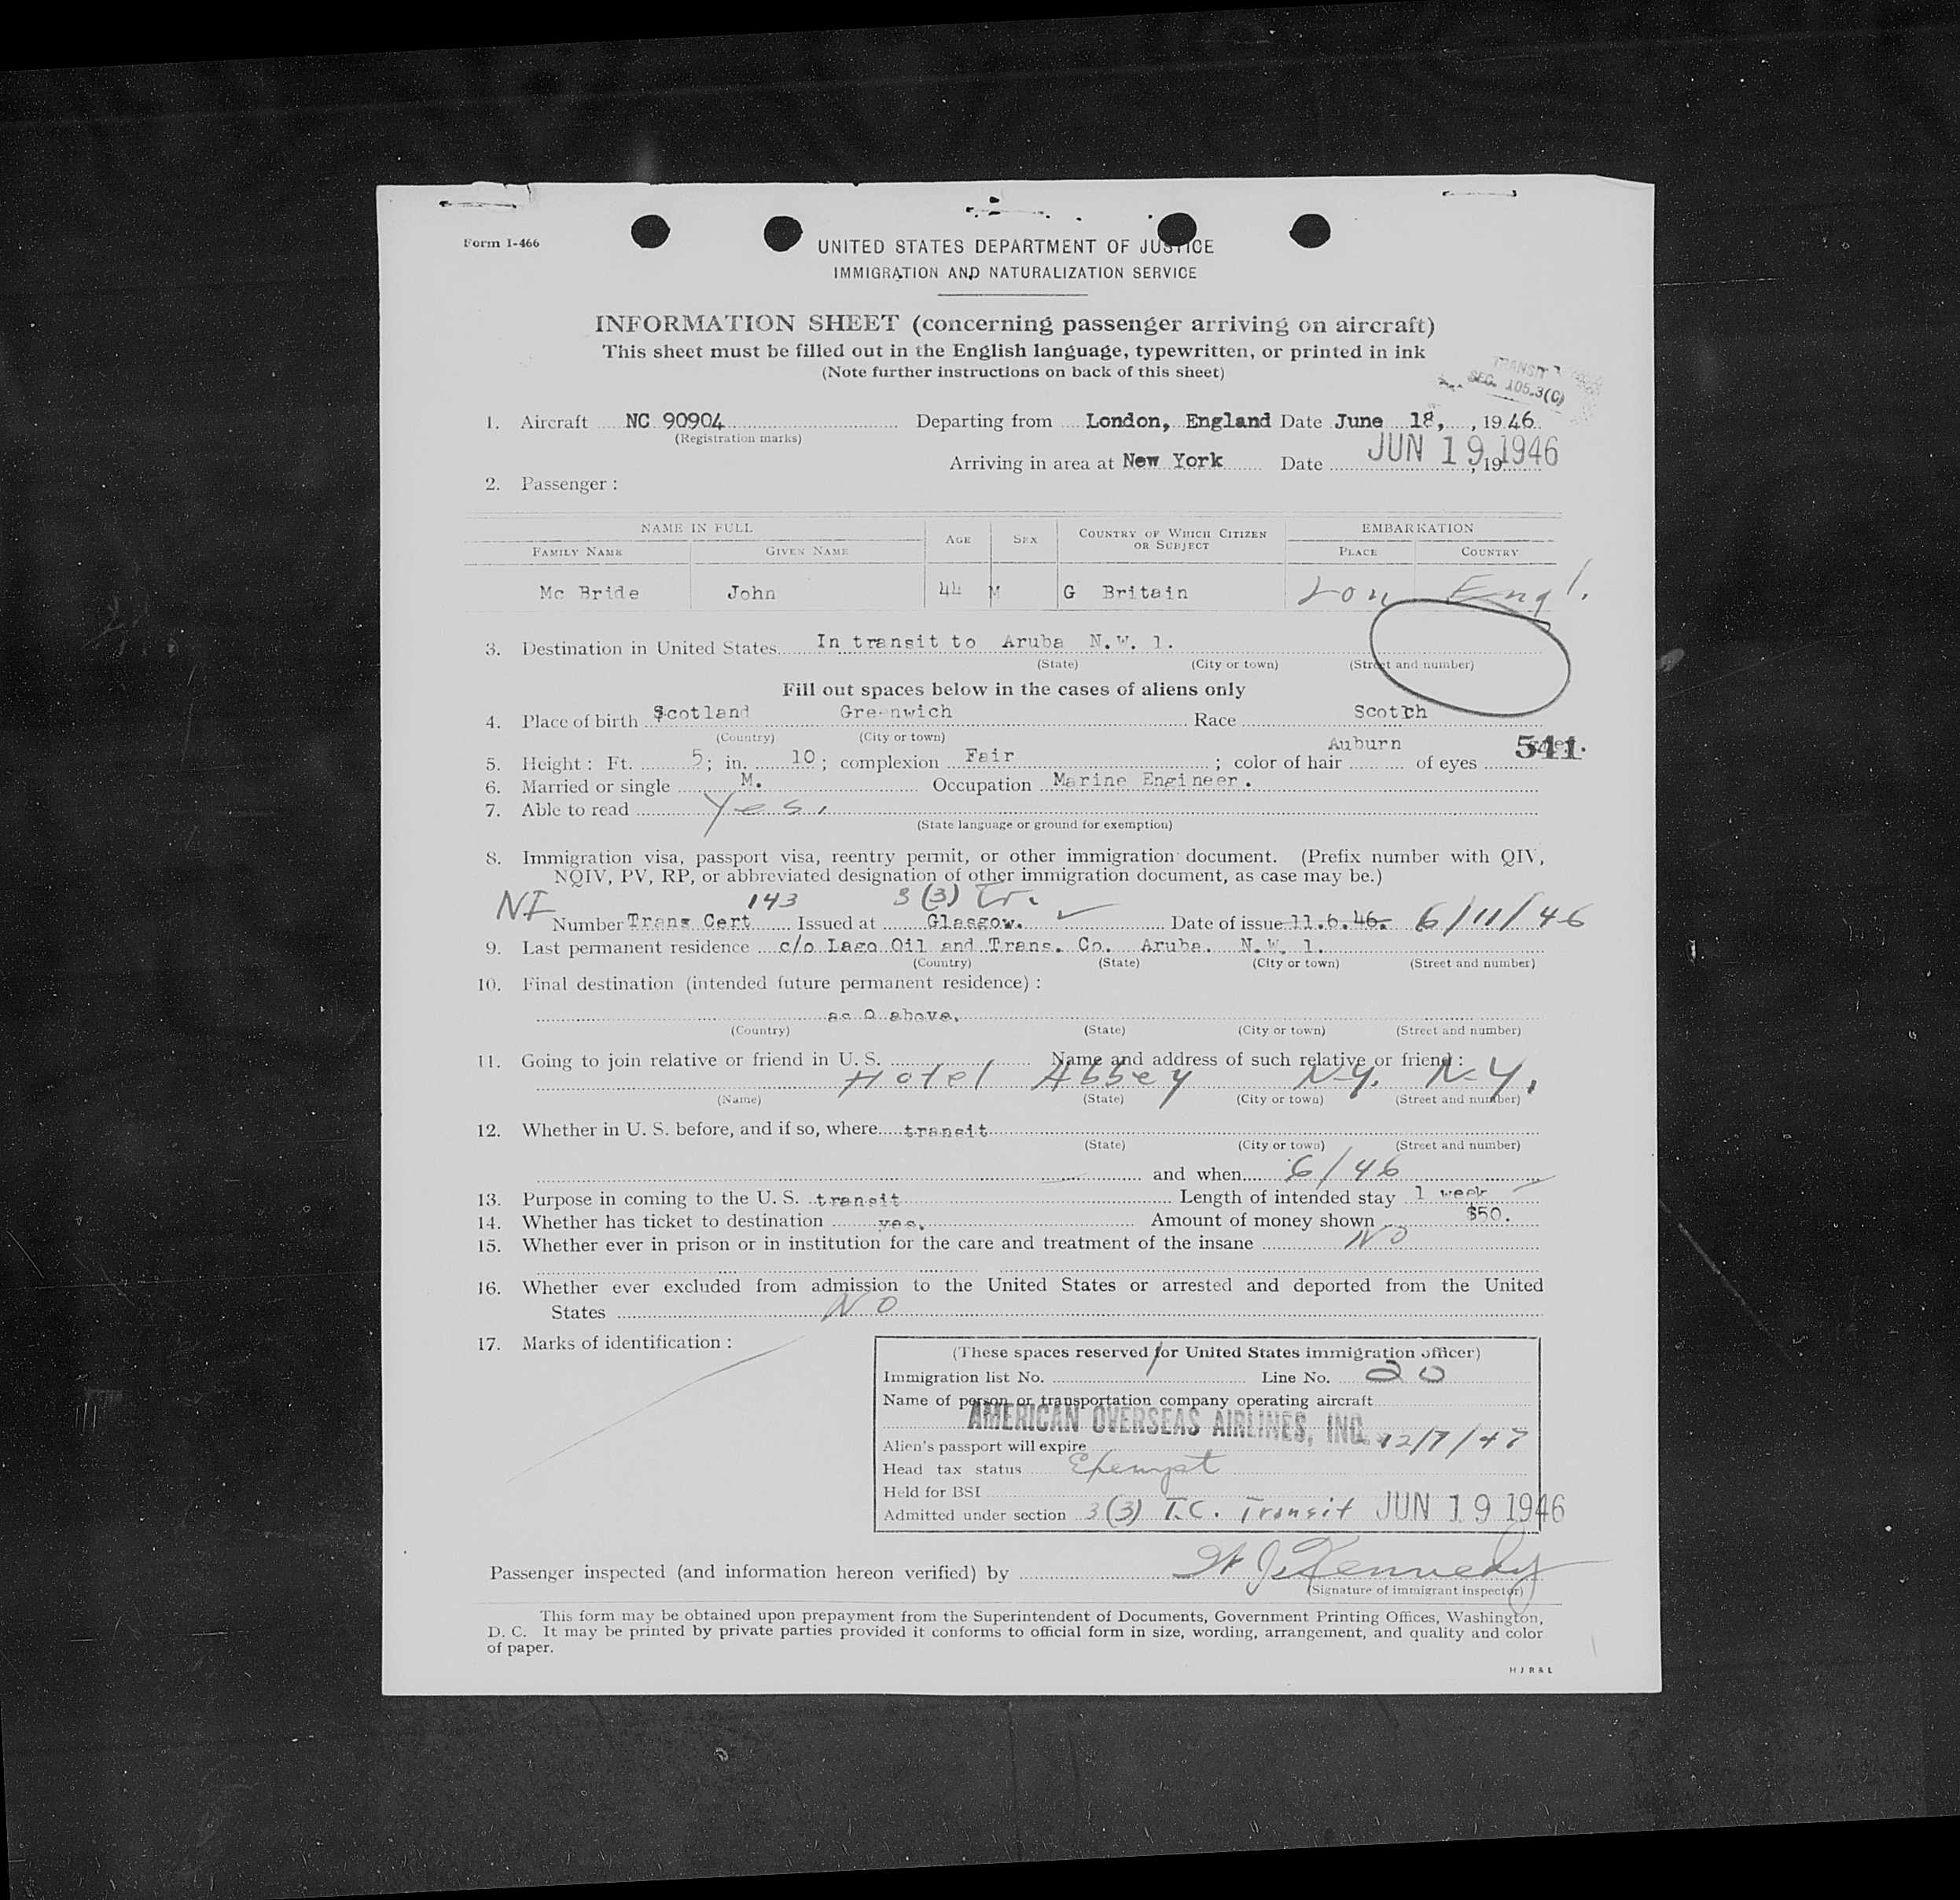 Form I-466
UNITED STATES DEPARTMENT OF JUSTICE
IMMIGRATION AND NATURALIZATION SERVICE
INFORMATION SHEET (concerning passenger arriving on aircraft)
This sheet must be filled out in the English language, typewritten, or printed in ink
(Note further instructions on back of this sheet)
TRANSIT
SEC. 105.3(C)
1. Aircraft NC 90904 Departing from London, England Date June 18, , 1946
(Registration marks)
Arriving in area at New York Date JUN 19 1946 , 19
2. Passenger :
NAME IN FULL AGE SEX COUNTRY OF WHICH CITIZEN OR SUBJECT EMBARKATION
FAMILY NAME GIVEN NAME PLACE COUNTRY
Mc Bride John 44 M G Britain Lon Engl.
3. Destination in United States In transit to Aruba N.W. 1.
(State) (City or town) (Street and number)
Fill out spaces below in the cases of aliens only
4. Place of birth Scotland Greenwich Race Scotch
(Country) (City or town)
5. Height : Ft. 5 ; in. 10 ; complexion Fair ; color of hair Auburn of eyes 541
6. Married or single M. Occupation Marine Engineer.
7. Able to read Yes.
(State language or ground for exemption)
8. Immigration visa, passport visa, reentry permit, or other immigration document. (Prefix number with QIV,
NQIV, PV, RP, or abbreviated designation of other immigration document, as case may be.)
NI 143 3 (3) Tr.
Number Trans Cert Issued at Glasgow. Date of issue 11.6.46. 6/11/46
9. Last permanent residence c/o Lago Oil and Trans. Co. Aruba. N.W. 1.
(Country) (State) (City or town) (Street and number)
10. Final destination (intended future permanent residence) :
as 9 above.
(Country) (State) (City or town) (Street and number)
11. Going to join relative or friend in U. S. Name and address of such relative or friend :
Hotel Abbey N.Y. N.Y.
(Name) (State) (City or town) (Street and number)
12. Whether in U. S. before, and if so, where transit
(State) (City or town) (Street and number)
and when 6/46
13. Purpose in coming to the U. S. transit Length of intended stay 1 week
14. Whether has ticket to destination yes. Amount of money shown $50.
15. Whether ever in prison or in institution for the care and treatment of the insane No
16. Whether ever excluded from admission to the United States or arrested and deported from the United
States No
17. Marks of identification :
(These spaces reserved for United States immigration officer)
Immigration list No. 1 Line No. 20
Name of person or transportation company operating aircraft
AMERICAN OVERSEAS AIRLINES, INC.
Alien's passport will expire 12/7/47
Head tax status Exempt
Held for BSI
Admitted under section 3(3) T.C. Transit JUN 19 1946
Passenger inspected (and information hereon verified) by W J Kennedy
(Signature of immigrant inspector)
This form may be obtained upon prepayment from the Superintendent of Documents, Government Printing Offices, Washington,
D. C. It may be printed by private parties provided it conforms to official form in size, wording, arrangement, and quality and color
of paper.
H J R & L